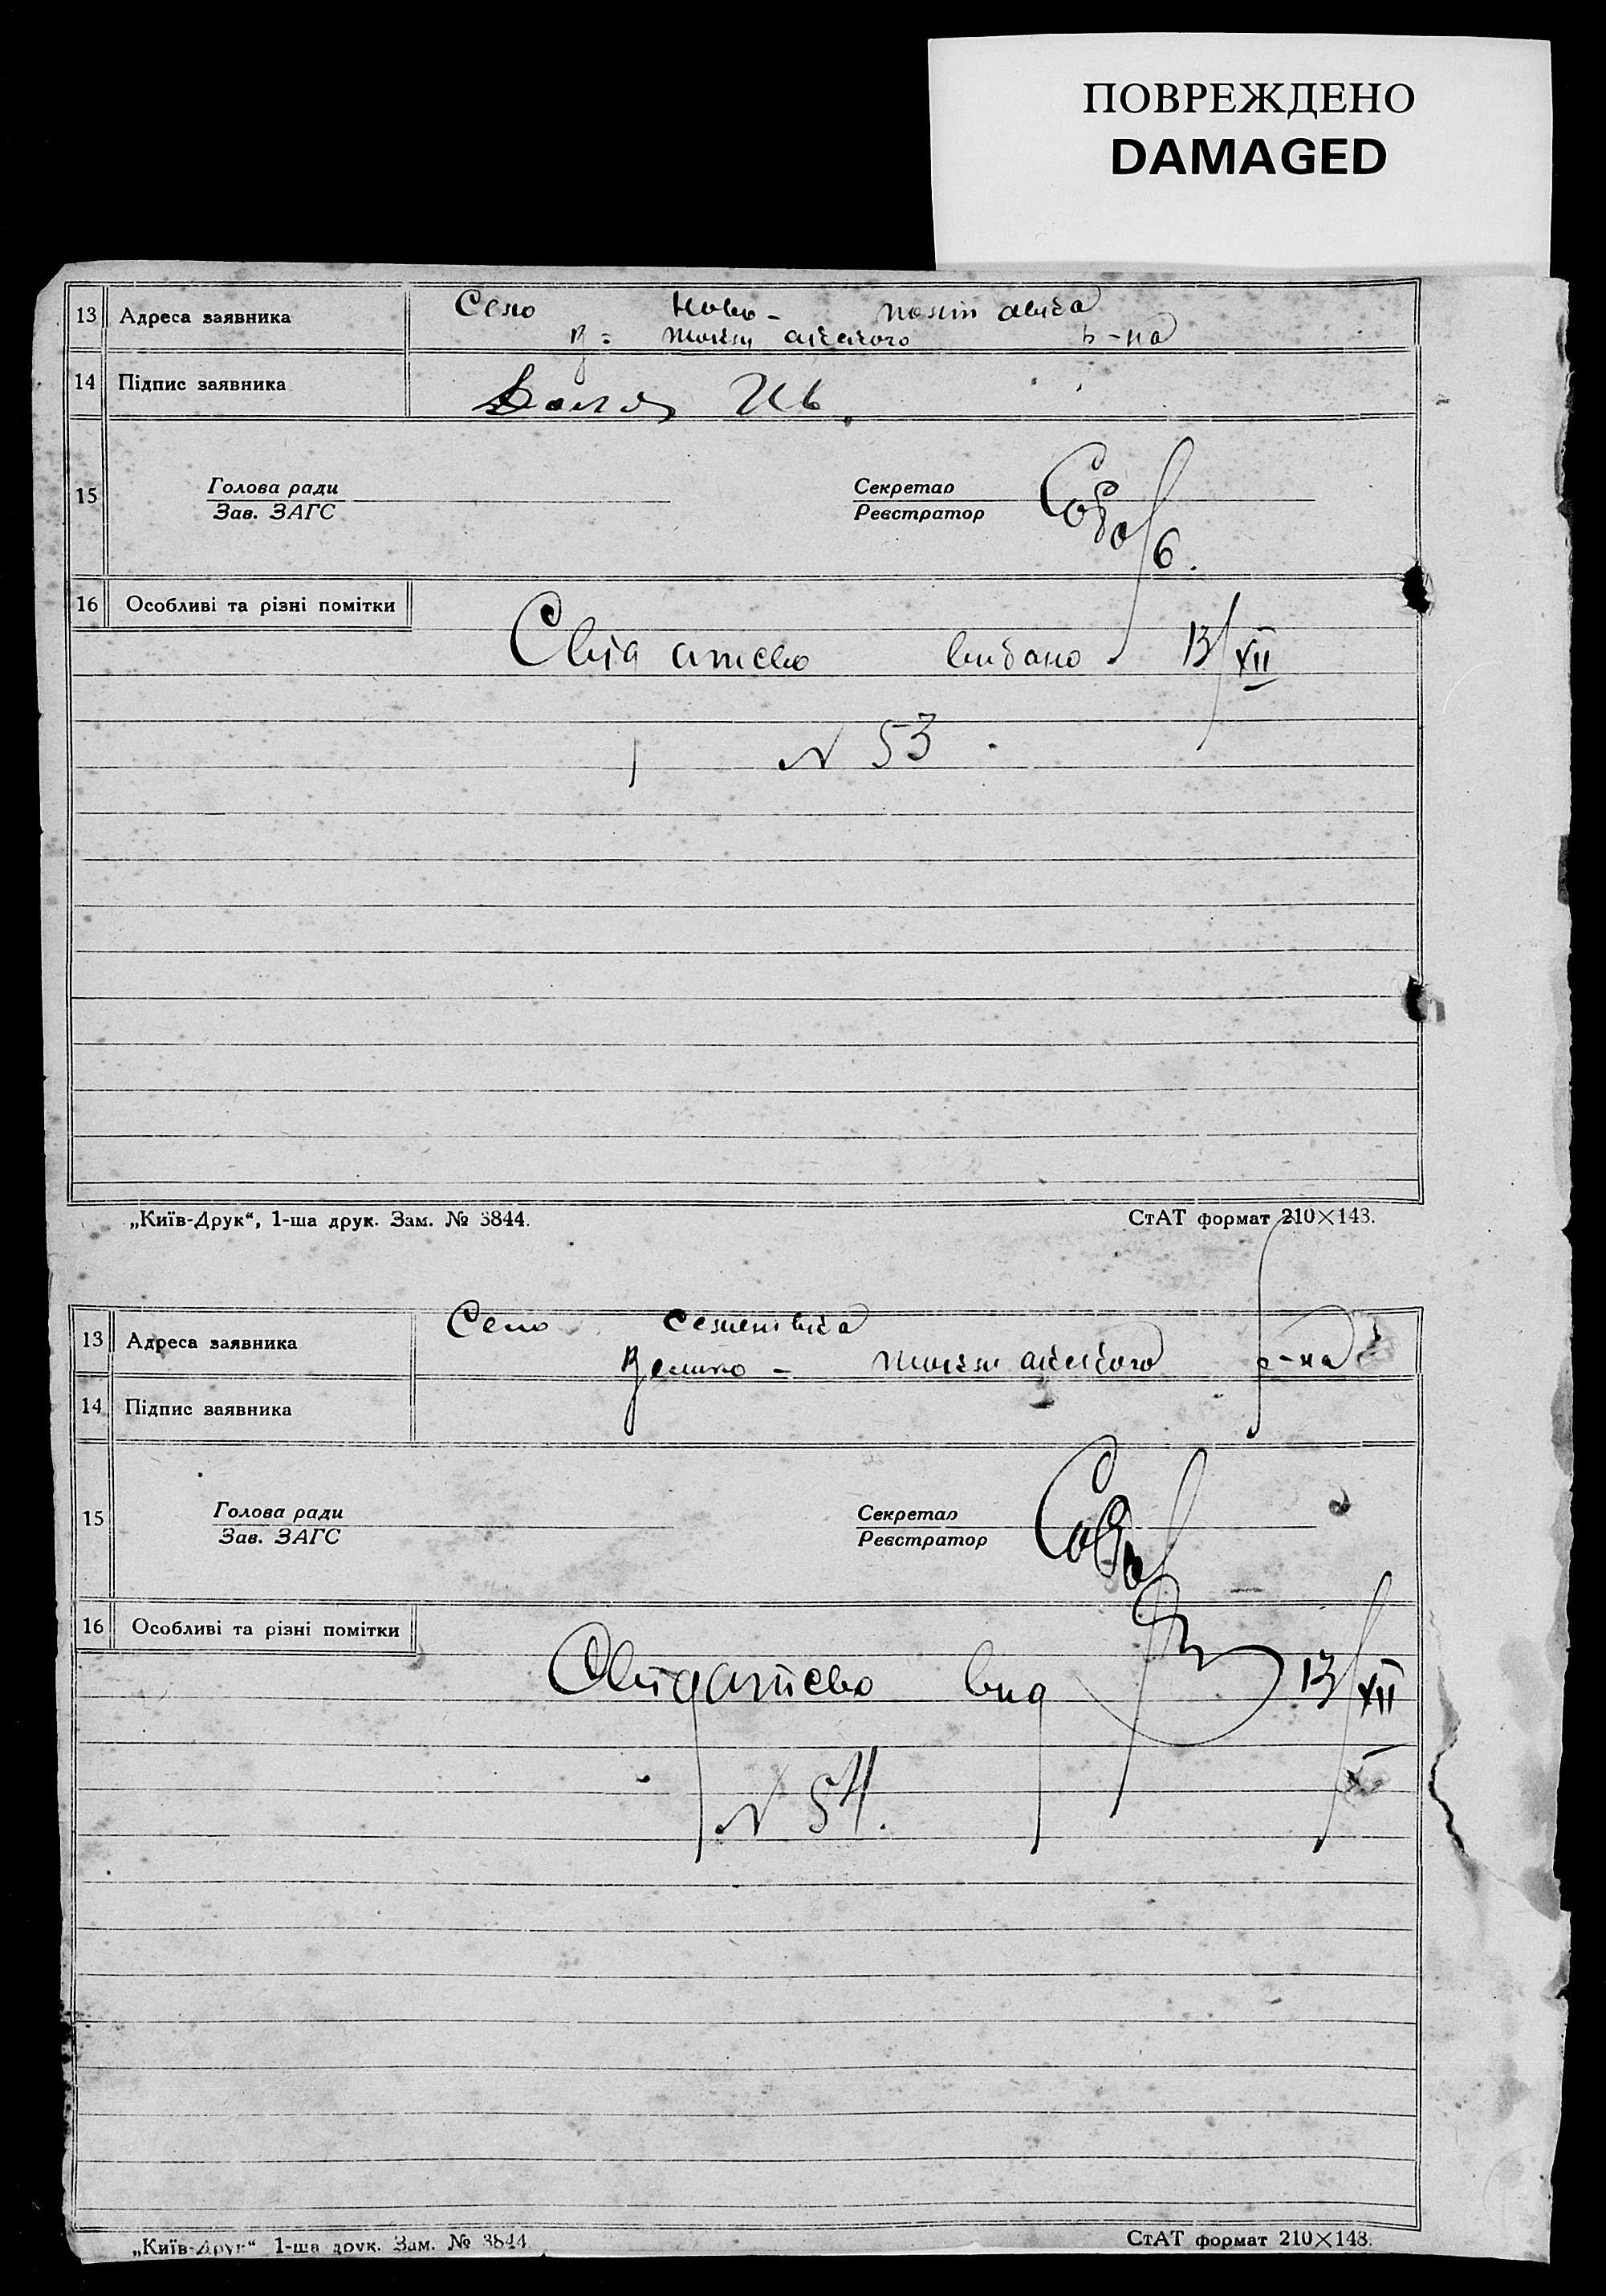 ПОВРЕЖДЕНО
DAMAGED
13 Адреса заявника Село Ново-
В= р-на
14 Підпис заявника
15 Голова ради Секретар
Зав. ЗАГС Реєстратор
16 Особливі та різні помітки
Свідатство видано 13/XII
N 53
„Київ-Друк“, 1-ша друк. Зам. № 3844. СтАТ формат 210×143.
13 Адреса заявника Село
Велико- р-на
14 Підпис заявника
15 Голова ради Секретар
Зав. ЗАГС Реєстратор
16 Особливі та різні помітки
Свідатство вид 13/XII
N 54.
„Київ-Друк“ 1-ша друк. Зам. № 3844 СтАТ формат 210×148.